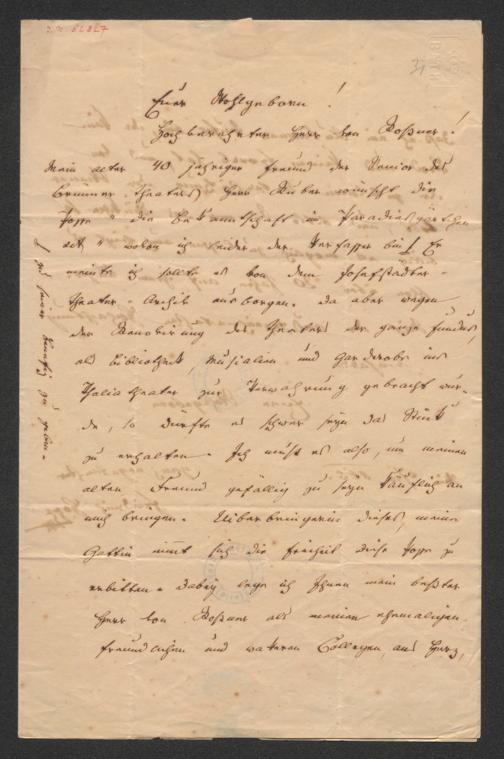 J. N. 62827
31
Euer Wohlgeborn!
Hochverehrter Herr von Roßner!
Mein alter 40 jähriger Freund der Senior des
Brünner Theaters Herr Huber wünscht die
Posse "die Bekanntschaft im Paradiesgartchen
" wovon ich leider der Verfasser bin! Er
meinte ich sollte es von dem Josefstädter-
theater-Archiv ausborgen. Da aber wegen
der Renovirung des Theaters der ganze Fundus,
als Bibliothek, Musicalien und Garderobe ins
Thaliatheater zur Verwahrung gebracht wur-
de, so dürfte es schwer seyn das Stück
zu erhalten. Ich muß es also, um meinem
alten Freund gefällig zu seyn käuflich an
mich bringen. Uiberbringerin dieses, meine
Gattin nimt sich die Freiheit diese Posse zu
erbitten. Dabey lege ich Ihnen mein bester
Herr von Roßner als meinen ehemaligen
freundlichen und wakeren Collegen, ans Herz,
zu geben.